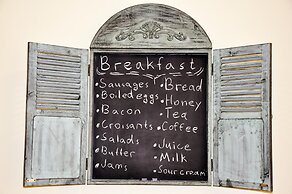 Breakfast
• Sausages
• Boiled eggs
• Bacon
• Croisants
• Salads
• Butter
• Jams
• Bread
• Honey
• Tea
• Coffee
• Juice
• Milk
• Sour cream